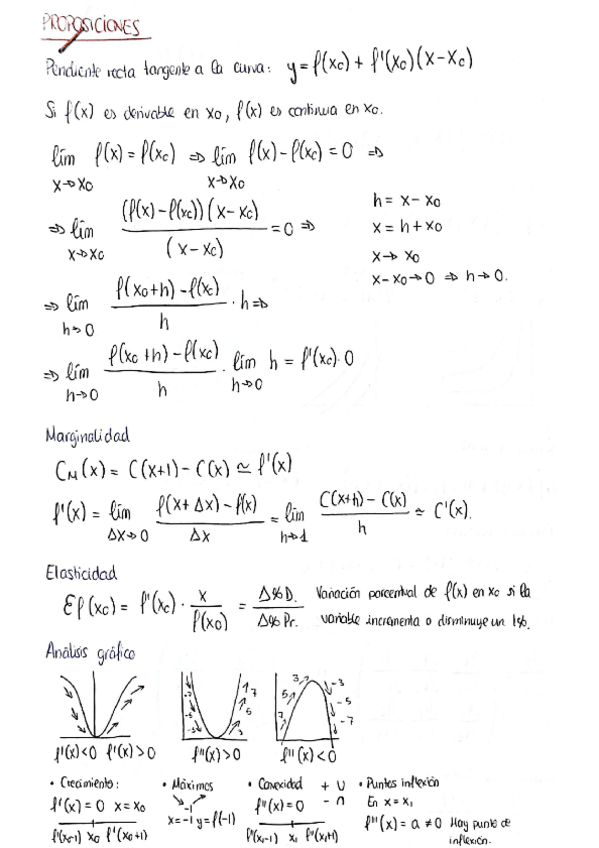 PROPOSICIONES
Pendiente recta tangente a la curva: y = f(x₀) + f'(x₀)(x-x₀)
Si f(x) es derivable en x₀, f(x) es continua en x₀.
lím f(x) = f(x₀) ⇒ lím f(x) - f(x₀) = 0 ⇒
x→x₀ x→x₀
⇒ lím (f(x) - f(x₀))(x-x₀) / (x-x₀) = 0 ⇒
x→x₀
h = x - x₀
x = h + x₀
x → x₀
x - x₀ → 0 ⇒ h → 0.
⇒ lím f(x₀+h) - f(x₀) / h · h ⇒
h→0
⇒ lím f(x₀+h) - f(x₀) / h · lím h = f'(x₀)·0
h→0 h→0
Marginalidad
C_M(x) = C(x+1) - C(x) ≃ f'(x)
f'(x) = lím f(x+Δx) - f(x) / Δx = lím C(x+h) - C(x) / h ≃ C'(x).
Δx→0 h→1
Elasticidad
Ef(x₀) = f'(x₀) · x / f(x₀) = Δ%D. / Δ%Pr.
Variación porcentual de f(x) en x₀ si la
variable incrementa o disminuye un 1%.
Análisis gráfico
3 -3
5 -5
7 -7
7
5
3
f'(x)<0 f'(x)>0 f''(x)>0 f''(x)<0
• Crecimiento:
f'(x) = 0 x = x₀
f'(x₀-1) x₀ f'(x₀+1)
• Máximos
-1
x = -1 y = f(-1)
• Convexidad + ∪
f''(x) = 0 - ∩
f''(x₁-1) x₁ f''(x₁+1)
• Puntos inflexión
En x = x₁
f'''(x) = a ≠ 0 Hay punto de
inflexión.